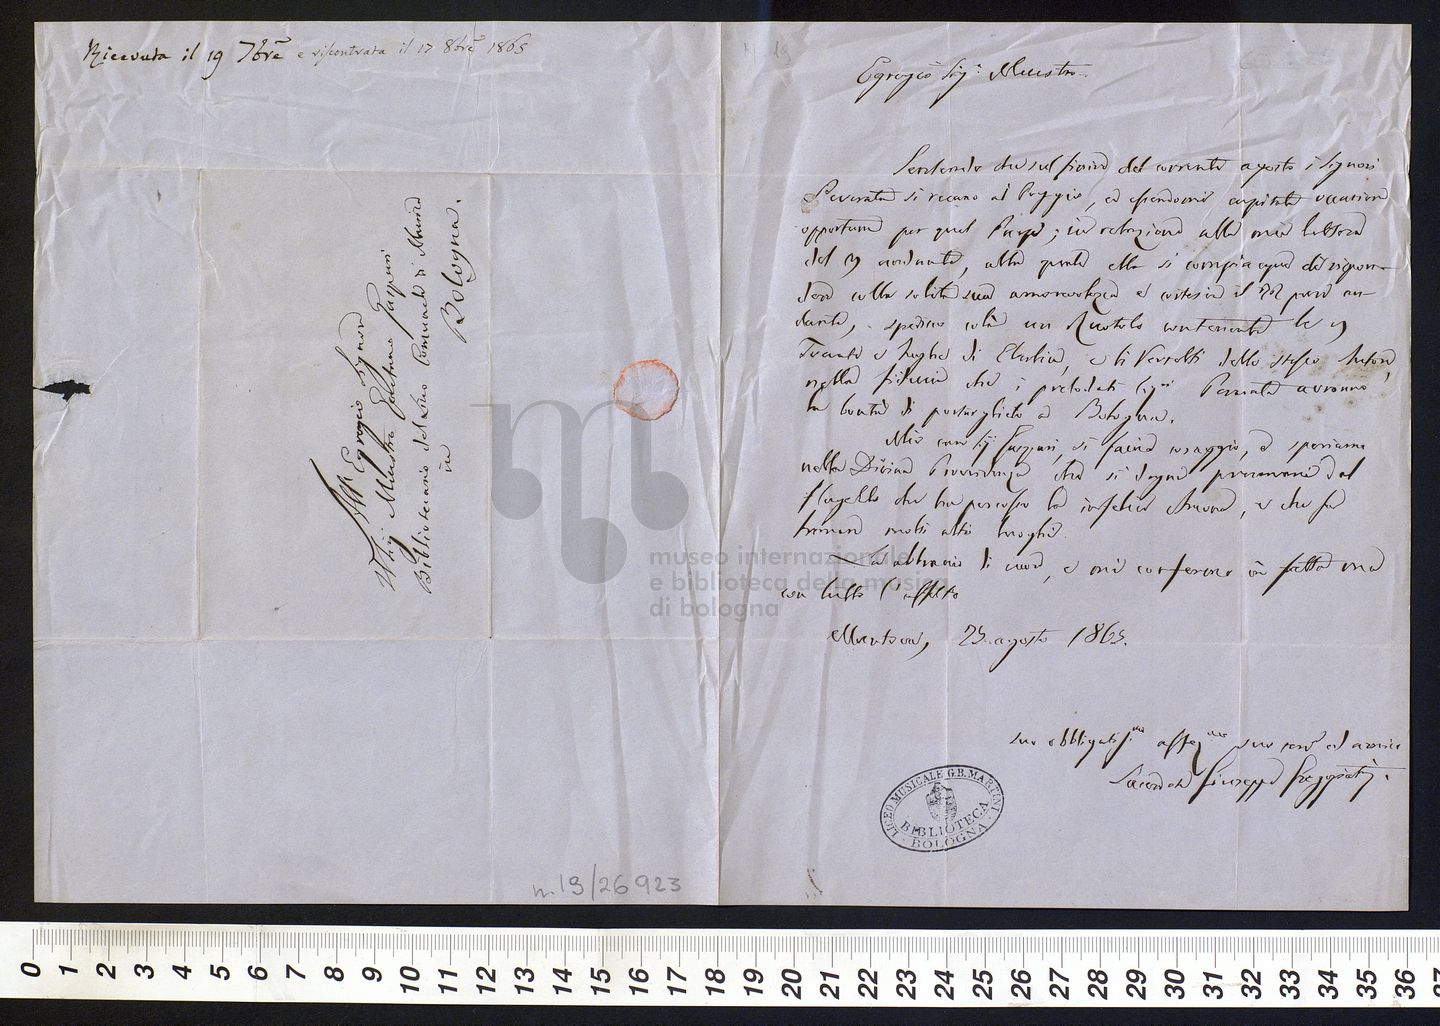 Ricevuta il 19 7bre e riscontrata il 17 8bre 1865
All' Egregio Signore
Sig. Maestro Gaetano Gaspari
Bibliotecario del Liceo Comunale di Musica
in
Bologna.
Egregio Sig. Maestro.
Sentendo che sul finire del corrente agosto i Signori
si recano al Poggio, ed essendomi capitata occasione
opportuna per quel Paese; in relazione alla mia lettera
del 9 andante, alla quale ella si compiacque di rispon-
dere colla solita sua amorevolezza e cortesia il 22 pure an-
dante, spedisco colà un Ruotolo contenente le 9
Toccate e Fughe di Eberlin, e li Versetti dello stesso Autore,
nella fiducia che i prelodati Sigri avranno
la bontà di portarglielo a Bologna.
Mio caro Sig. Gaspari, si faccia coraggio, e speriamo
nella Divina Provvidenza che si degni preservarci dal
flagello che ha percosso la infelice Ancona, e che fa
tremare molti altri luoghi.
La abbraccio di cuore, e mi confermo in fretta ma
con tutto l'affetto
Mantova, 25 agosto 1865.
suo obbligatiss.mo affez.mo servo ed amico
Sacerdote Giuseppe Greggiati.
LICEO MUSICALE G.B. MARTINI
BIBLIOTECA
BOLOGNA
n. 19/26923
museo internazionale
e biblioteca della musica
di bologna
0 1 2 3 4 5 6 7 8 9 10 11 12 13 14 15 16 17 18 19 20 21 22 23 24 25 26 27 28 29 30 31 32 33 34 35 36 37